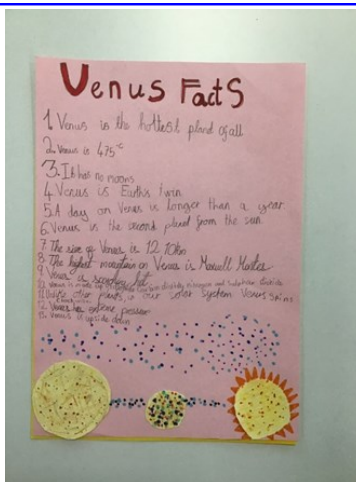 Venus Facts
1. Venus is the hottest planet of all
2. Venus is 475°C
3. It has no moons
4. Venus is Earth's twin
5. A day on Venus is longer than a year
6. Venus is the second planet from the sun
7. The size of Venus is 12 10
8. The highest mountain on Venus is Maxwell Montes
9. Venus is hot
10. Venus is made up of carbon dioxide, nitrogen and
11. Unlike other planets in our solar system Venus spins
12. Venus has extreme pressure
13. Venus is upside down